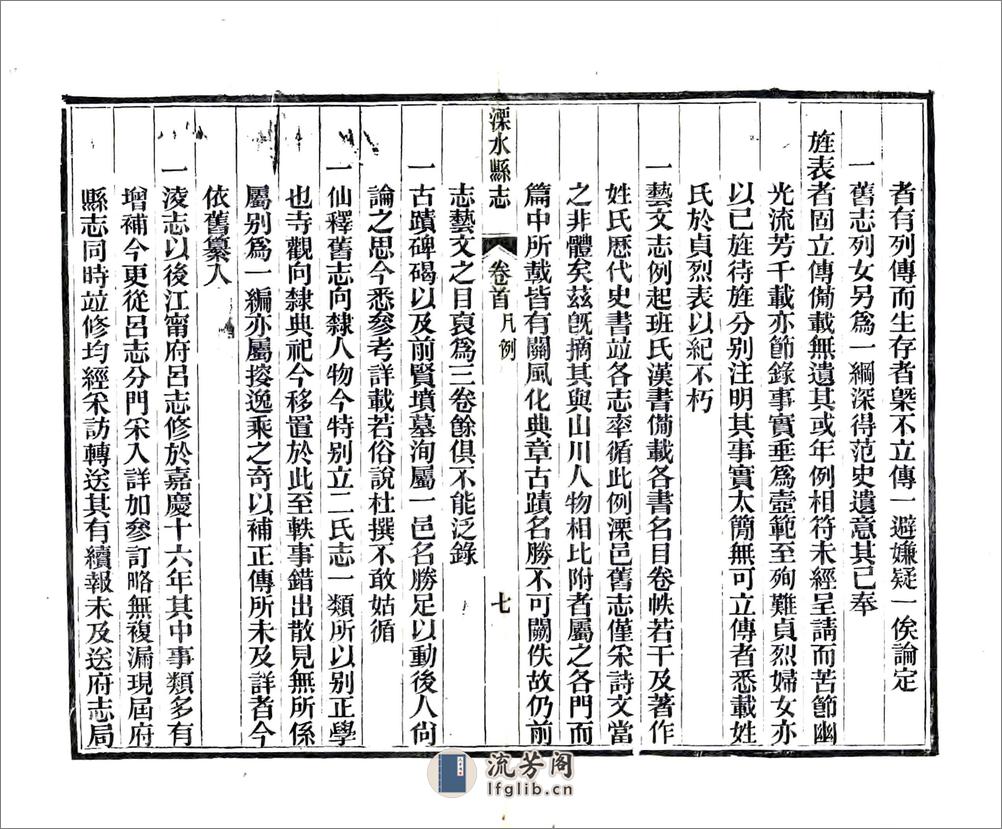 者有列傳而生存者槩不立傳一避嫌疑一俟論定
一舊志列女另為一綱深得范史遺意其已奉
旌表者固立傳備載無遺其或年例相符未經呈請而苦節幽
光流芳千載亦節錄事實垂為壼範至殉難貞烈婦女亦
以已旌待旌分別注明其事實太簡無可立傳者悉載姓
氏於貞烈表以紀不朽
一藝文志例起班氏漢書備載各書名目卷帙若干及著作
姓氏歷代史書竝各志率循此例溧邑舊志僅采詩文當
之非體矣茲旣摘其與山川人物相比附者屬之各門而
篇中所載皆有關風化典章古蹟名勝不可闕佚故仍前
溧水縣志
卷首
凡例
七
志藝文之目裒為三卷餘俱不能泛錄
一古蹟碑碣以及前賢墳墓洵屬一邑名勝足以動後人尙
論之思今悉參考詳載若俗說杜撰不敢姑循
一仙釋舊志向隸人物今特別立二氏志一類所以別正學
也寺觀向隸典祀今移置於此至軼事錯出散見無所係
屬別爲一編亦屬摉逸乘之奇以補正傳所未及詳者今
依舊纂入
一淩志以後江甯府呂志修於嘉慶十六年其中事類多有
增補今更從呂志分門采入詳加參訂略無複漏現屆府
縣志同時竝修均經采訪轉送其有續報未及送府志局
流芳阁
lfglib.cn